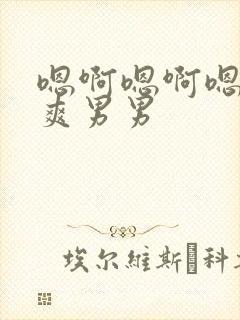 嗯啊嗯啊嗯
爽男男
埃尔維斯·科